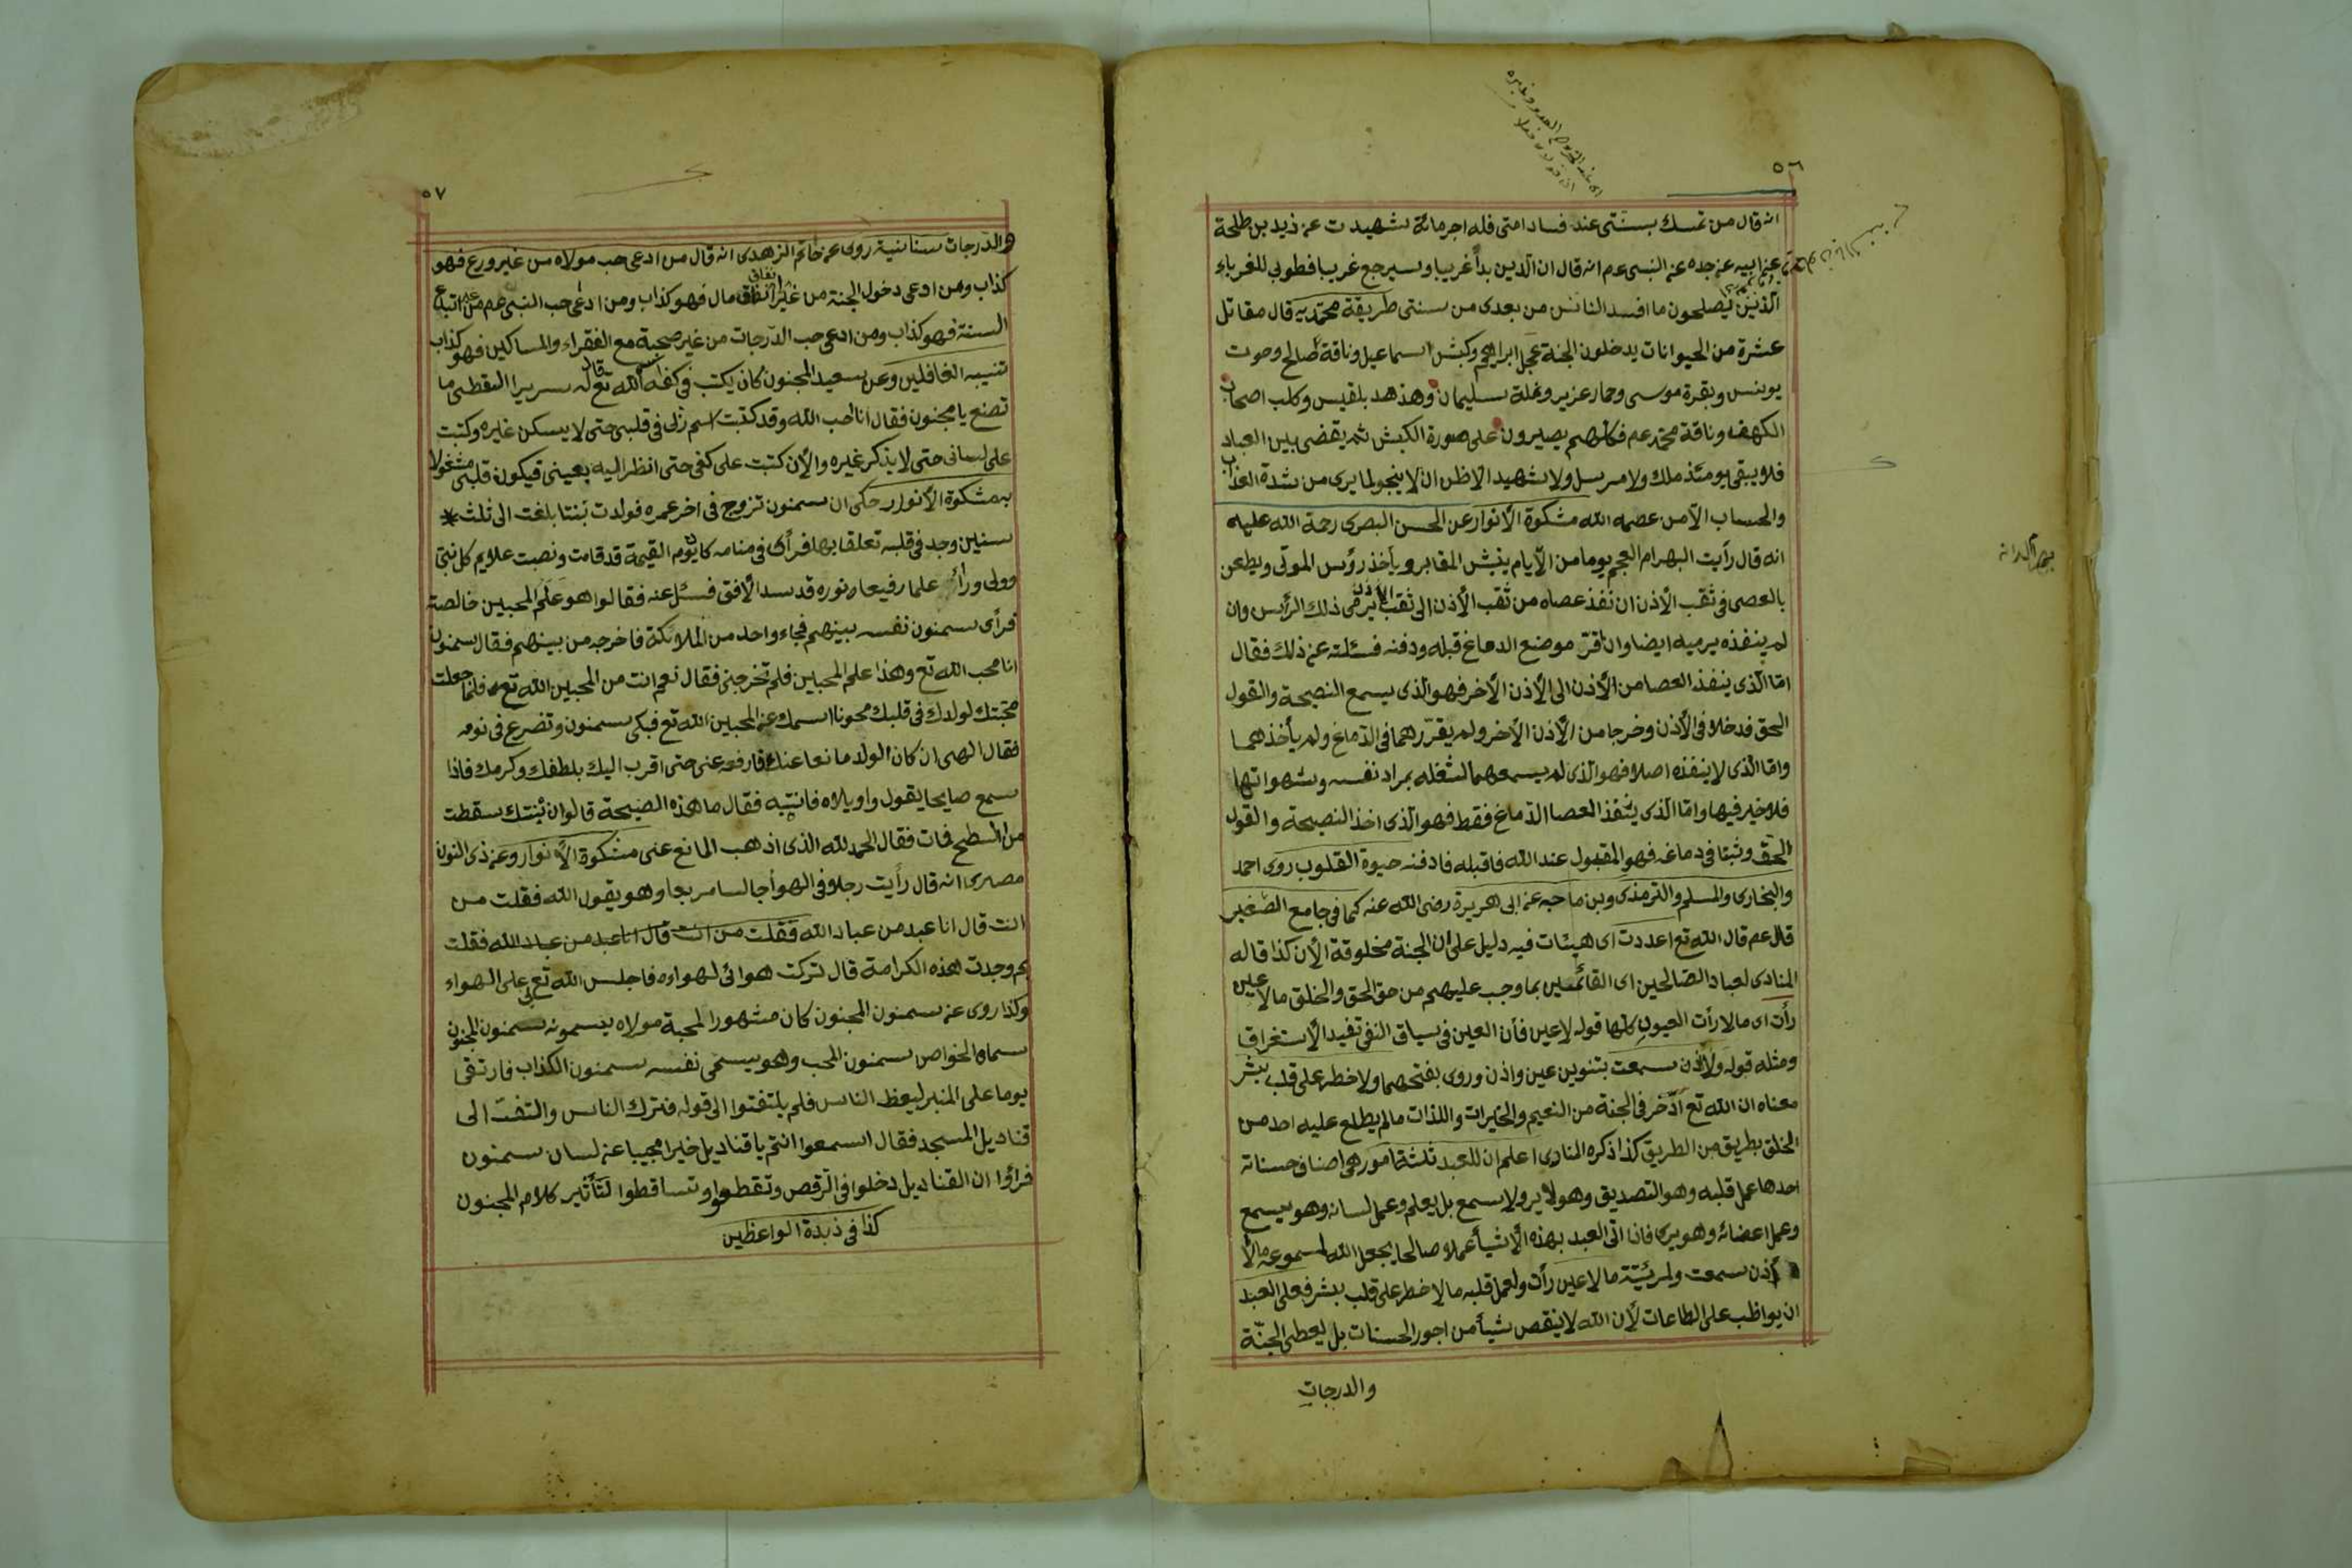 ٥٦
انه قال من تمسك بسنتى عند فساد امتى فله اجر مائة شهيد ت عن زيد بن طلحة
عن ابيه عن جده عن النبى عم انه قال ان الدين بدأ غريبا وسيرجع غريبا فطوبى للغرباء
الذين يصلحون ما افسد الناس من بعدى من سنتى طريقة محمديه قال مقاتل
عشرة من الحيوانات يدخلون الجنة عجل ابراهيم وكبش اسماعيل وناقة صالح وحوت
يونس وبقرة موسى وحمار عزير ونملة سليمان وهذهد بلقيس وكلب اصحاب
الكهف وناقة محمد عم فكلهم يصيرون على صورة الكبش ثم يقضى بين العباد
فلا يبقى يومئذ ملك ولا مرسل ولا شهيد الا ظن ان لا ينجو لما يرى من شدة العذاب
والحساب الا من عصمه الله مشكوة الأنوار عن الحسن البصرى رحمة الله عليه
انه قال رأيت البهرام العجم يوما من الأيام ينبش المقابر ويأخذ رؤس الموتى ويطعن
بالعصى فى ثقب الأذن ان نفذ عصاه من ثقب الأذن الى ثقب الأذن يرمى ذلك الرأس وان
لم ينفذه يرميه ايضا وان قرّ موضع الدماغ قبله ودفنه فسئلته عن ذلك فقال
امّا الّذى ينفذ العصا من الأذن الى الأذن الأخر فهو الّذى يسمع النصيحة والقول
الحق فدخلا فى الأذن وخرجا من الأذن الأخر ولم يقرّر هما فى الدّماغ ولم يأخذ هما
وامّا الذى لا ينفذه اصلا فهو الذى لم يسمعهما لشغله بمراد نفسه وشهواتها
فلا خير فيها وامّا الّذى ينفذ العصا الدّماغ فقط فهو الّذى اخذ النصيحة والقول
الحق وثبتا فى دماغه فهو المقبول عند الله فاقبله فادفنه حيوة القلوب روى احمد
والبخارى والمسلم والترمذى وبن ماجه عن ابى هريرة رضى الله عنه كما فى جامع الصّغير
قال عم قال الله تع اعددت اى هيئات فيه دليل على ان الجنة مخلوقة الأن كذا قاله
المنادى لعباد الصّالحين اى القائمين بما وجب عليهم من حق الحق والخلق ما لا عين
رأت اى ما لا رأت العيون كلها قوله لا عين فأن العين فى سياق النفى تفيد الأستغراق
ومثله قوله ولا أذن سمعت بتنوين عين واذن وروى بفتحهما ولا خطر على قلب بشر
معناه ان الله تع ادّخر فى الجنة من النعيم والخيرات واللذات مالم يطلع عليه احد من
الخلق بطريق من الطريق كذا ذكره المنادى اعلم ان للعبد ثلثة امور هى اصناف حسناته
احدها عمل قلبه وهو التصديق وهو لا يرو لا يسمع بل يعلم وعمل لسانه وهو يسمع
وعمل اعضائه وهو يرى فاذا اتى العبد بهذه الأشيأ عملا صالحا يجعل الله لمسموعه مالا
أذن سمعت ولمرئيّته مالا عين رأت ولعمل قلبه مالا خطر على قلب بشر فعلى العبد
ان يواظب على الطاعات لأن الله لا ينقص شيأ من اجور الحسنات بل يعطى الجنّة
والدرجات
٥٧
والدّرجات سنانية روى عن حاتم الزهدى انه قال من ادعى حب مولاه من غير ورع فهو
كذاب ومن ادعى دخول الجنة من غير انفاق مال فهو كذاب ومن ادعى حب النبى عم من غير اتباع
السنة فهو كذاب ومن ادعى حب الدّرجات من غير صحبة مع الفقراء والمساكين فهو كذاب
تنبيه الغافلين وعن سعيد المجنون كان يكتب فى كفه اسم الله تع قال له سريرا السقطى ما
تصنع يا مجنون فقال انا احب الله وقد كتبت اسم ربى فى قلبى حتى لا يسكن غيره وكتبت
على لسانى حتى لا يذكر غيره والأن كتبت على كفى حتى انظر اليه بعينى فيكون قلبى مشغولا
به مشكوة الأنوار حكى ان سمنون تزوج فى اخر عمره فولدت بنتا بلغت الى ثلث
سنين وجد فى قلبه تعلقا بها فرأى فى منامه كان يوم القيمة قد قامت ونصبت علايم كل نبى
وولى وراى علما رفيعا ونوره قد سد الأفق فسئل عنه فقالوا هو علم المحبين خالصة
فرأى سمنون نفسه بينهم فجاء واحد من الملائكة فاخرجه من بينهم فقال سمنون
انا محب الله تع وهذا علم المحبين فلم تخرجنى فقال نعم انت من المحبين الله تع فلما جعلت
محبتك لولدك فى قلبك محونا اسمك عن المحبين الله تع فبكى سمنون وتضرع فى نومه
فقال الهى ان كان الولد مانعا عنك فارفعه عنى حتى اقرب اليك بلطفك وكرمك فاذا
سمع صايحا يقول واويلاه فانتبه فقال ما هذه الصيحة قالوا ان بنتك سقطت
من السّطح فمات فقال الحمد لله الذى اذهب المانع عنى مشكوة الأنوار وعن ذى النون
مصرى انه قال رأيت رجلا فى الهوأ جالسا مربعا وهو يقول الله فقلت من
انت قال انا عبد من عباد الله فقلت من انت قال انا عبد من عباد الله فقلت
بم وجدت هذه الكرامة قال تركت هوائى لهواوه فاجلس الله تع لى على الهواء
وكذا روى عن سمنون المجنون كان مشهورا لمحبة مولاه يسمونه سمنون المجنون
سماه الخواص سمنون المحب وهو يسمى نفسه سمنون الكذاب فارتقى
يوما على المنبر ليعظ الناس فلم يلتفتوا الى قوله فترك الناس والتفت الى
قناديل المسجد فقال اسمعوا انتم يا قناديل خيرا مجيبا عن لسان سمنون
فرأوا ان القناديل دخلوا فى الرقص وتقطعوا وتساقطوا لتأثير كلام المجنون
كذا فى ذبدة الواعظين